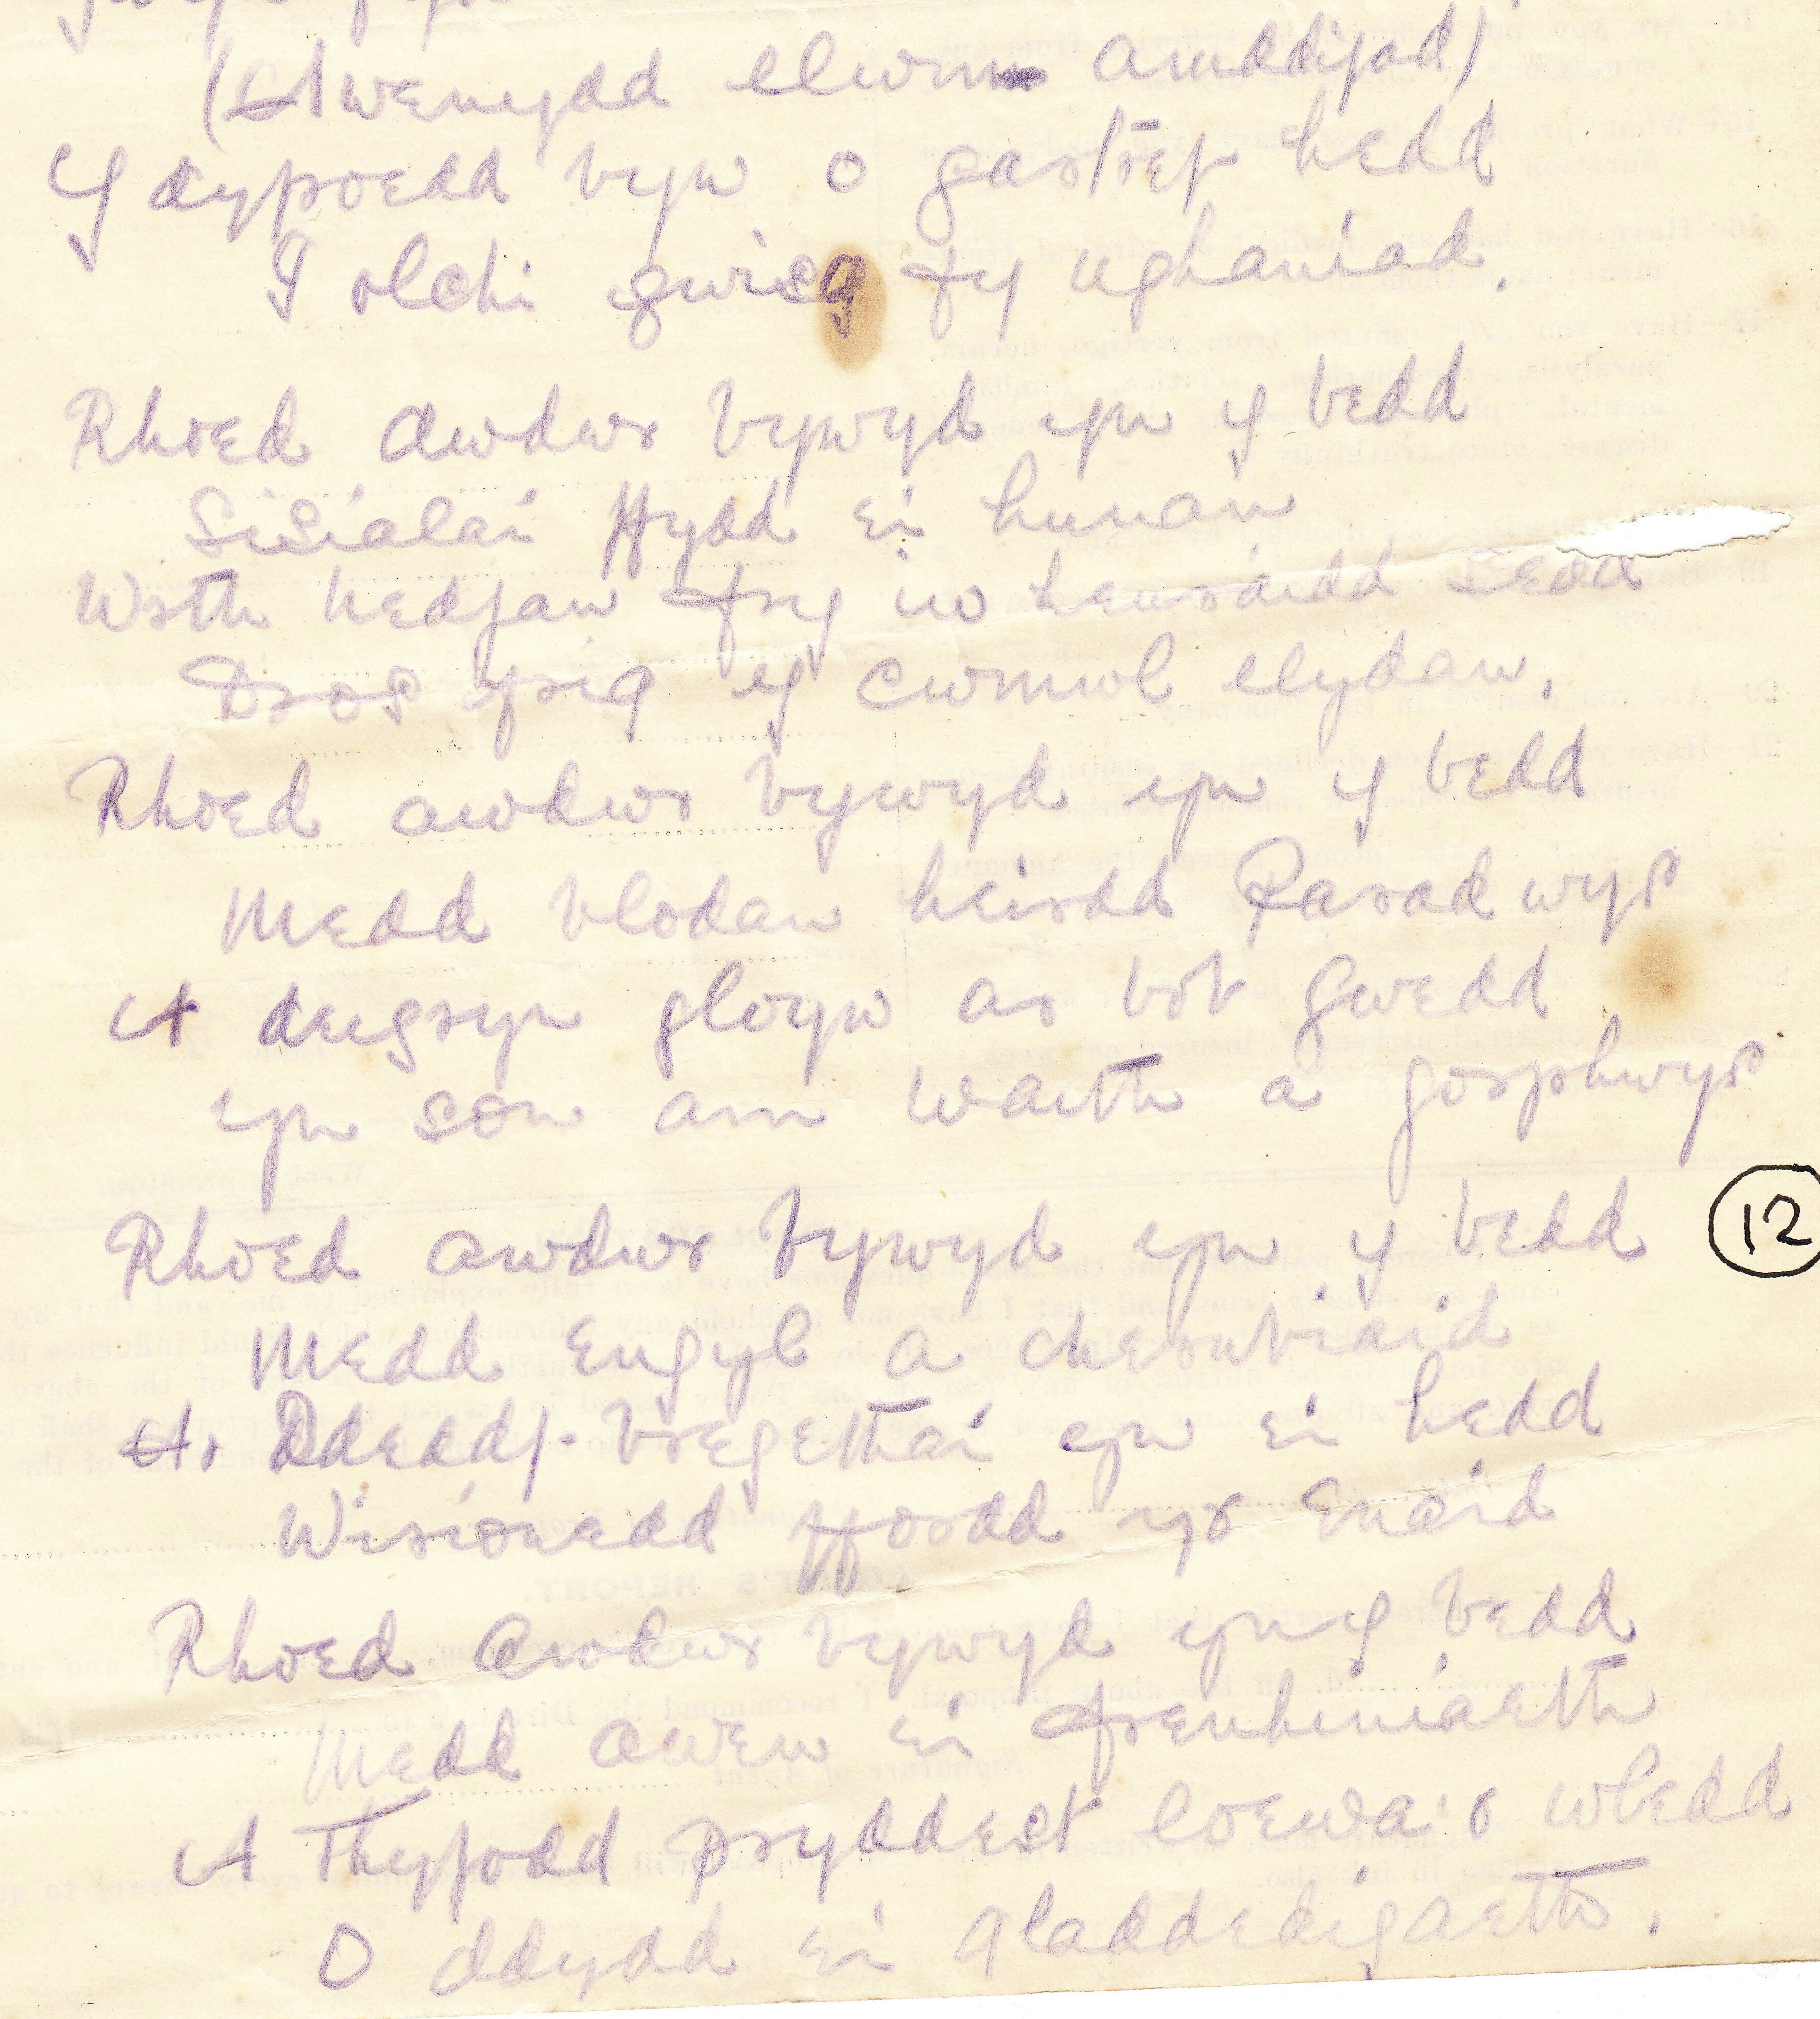 (Awenydd elwm amddifad)
Y dyfroedd byw o gartref hedd
I olchi gwisg fy nghaniad.
Rhoed awdwr bywyd yn y bedd
Sisialai Ffydd ei hunan
Wrth hedfan fry iw henraidd sedd
Dros frig y cwmwl llydan.
Rhoed awdwr bywyd yn y bedd
Medd blodau heirdd Paradwys
A deigryn gloyw ar bob gwedd
yn son am waith a gorphwys
Rhoed awdwr bywyd yn y bedd
12
Medd Engyl a cherubiaid
Ar Ddeddf bregethai yn ei hedd
Wirionedd ffordd yr Enaid
Rhoed Awdwr bywyd yn y bedd
Medd awen ei frenhiniaeth
A Thyfodd pryddest loewa'r wledd
O ddydd ei gladdedigaeth.